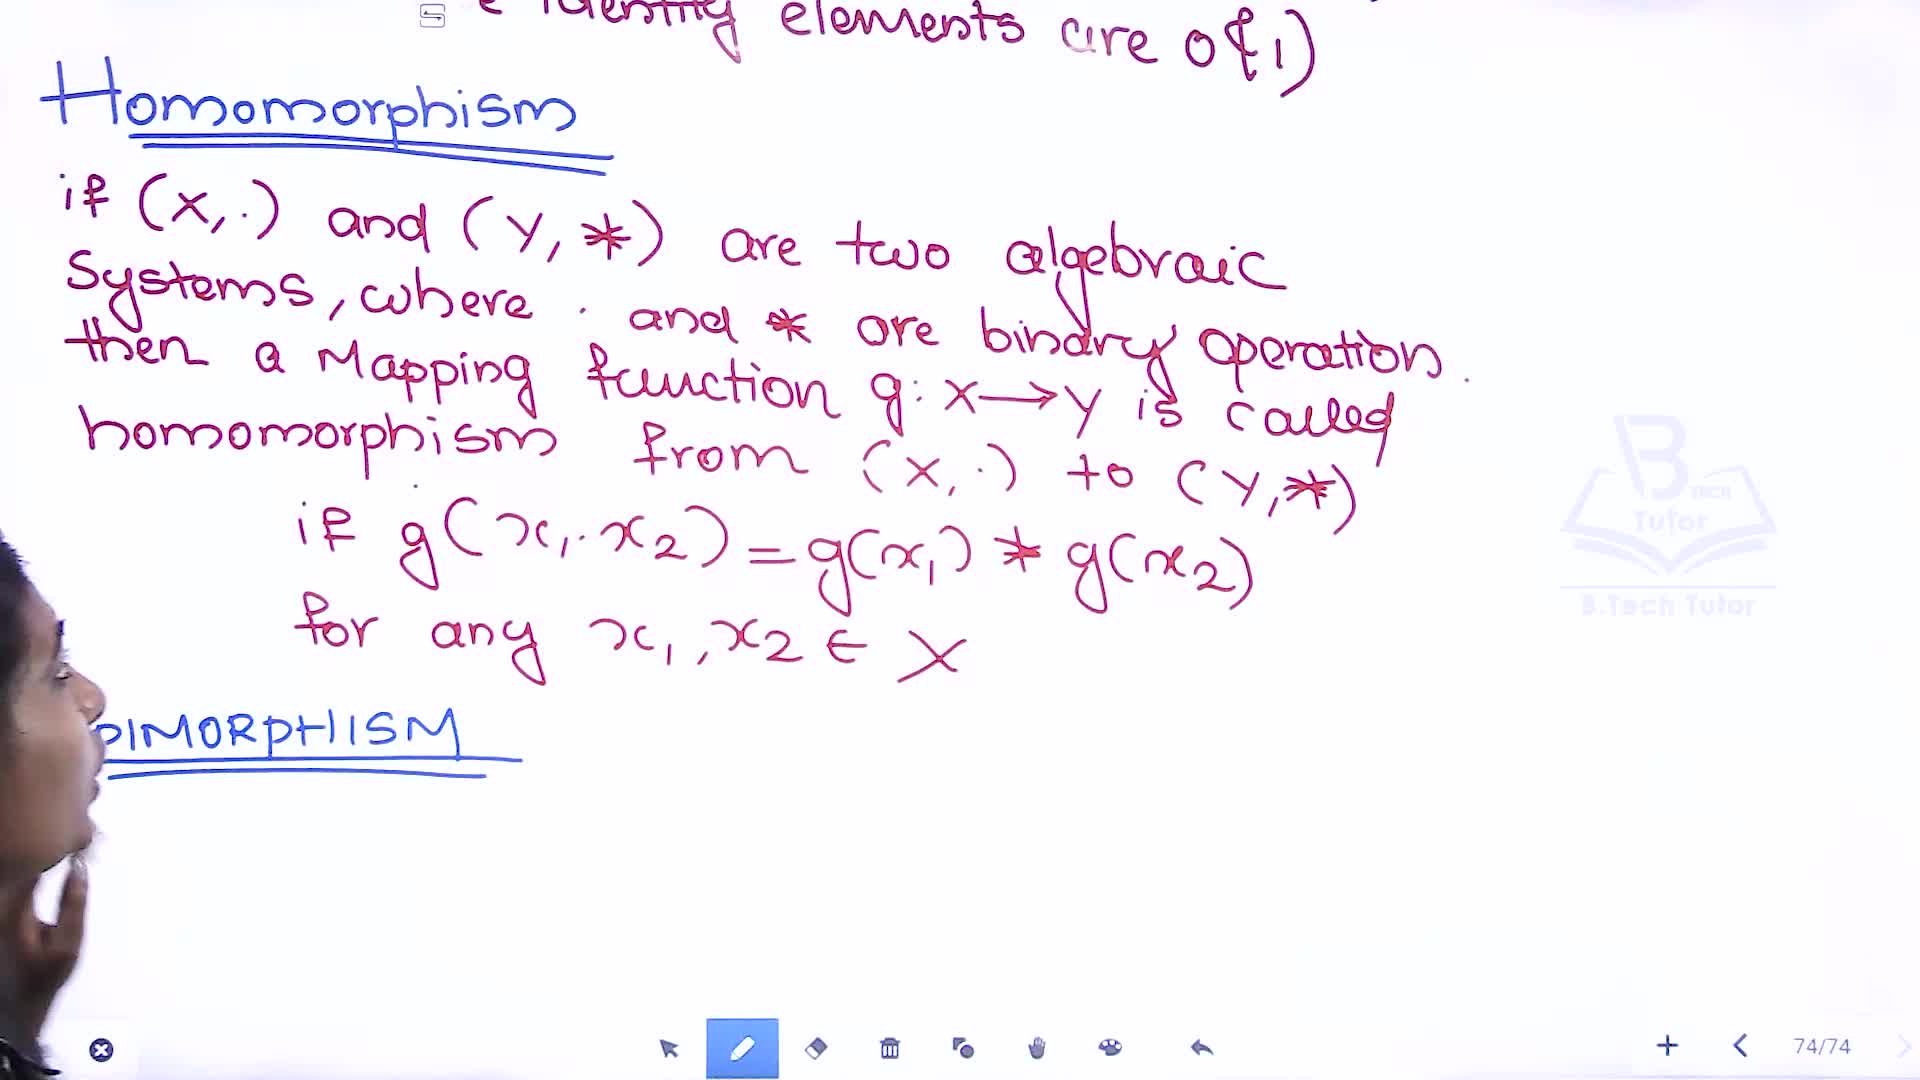 identity elements are 0 & 1)
Homomorphism
if (X, ·) and (Y, *) are two algebraic
Systems, where · and * are binary operation.
then a Mapping function g: X→Y is called
homomorphism from (X, ·) to (Y, *)
if g(x₁ · x₂) = g(x₁) * g(x₂)
for any x₁, x₂ ∈ X
PIMORPHISM
B
TECH
Tutor
B.Tech Tutor
74/74